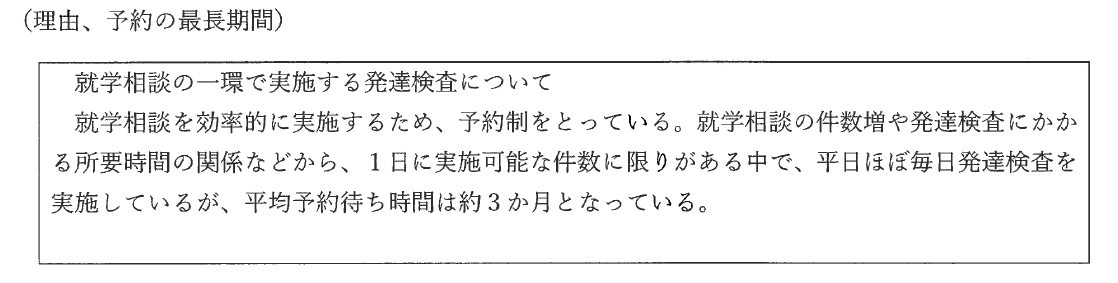 （理由、予約の最長期間）
就学相談の一環で実施する発達検査について
就学相談を効率的に実施するため、予約制をとっている。就学相談の件数増や発達検査にかか
る所要時間の関係などから、１日に実施可能な件数に限りがある中で、平日ほぼ毎日発達検査を
実施しているが、平均予約待ち時間は約３か月となっている。